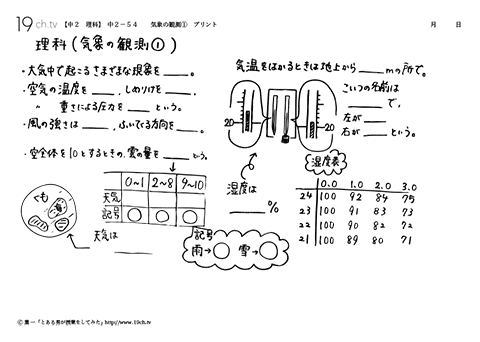 19ch.tv 【中2 理科】 中2-54 気象の観測① プリント 月 日
理科(気象の観測①)
・大気中で起こるさまざまな現象を____。
・空気の温度を____, しめりけを____,
〃 重さによる圧力を____という。
・風の強さは____, ふいてくる方向を____。
・空全体を10とするときの、雲の量を____という。
0~1 2~8 9~10
天気
記号
くも
天気は____
記号
雨→ 雪→
気温をはかるときは地上から____mの所で。
こいつの名前は
____で、
左が____
右が____という。
20 20
湿度は
____%
湿度表
0.0 1.0 2.0 3.0
24 100 92 84 75
23 100 91 83 73
22 100 90 82 72
21 100 89 80 71
Ⓒ 葉一「とある男が授業をしてみた」http://www.19ch.tv